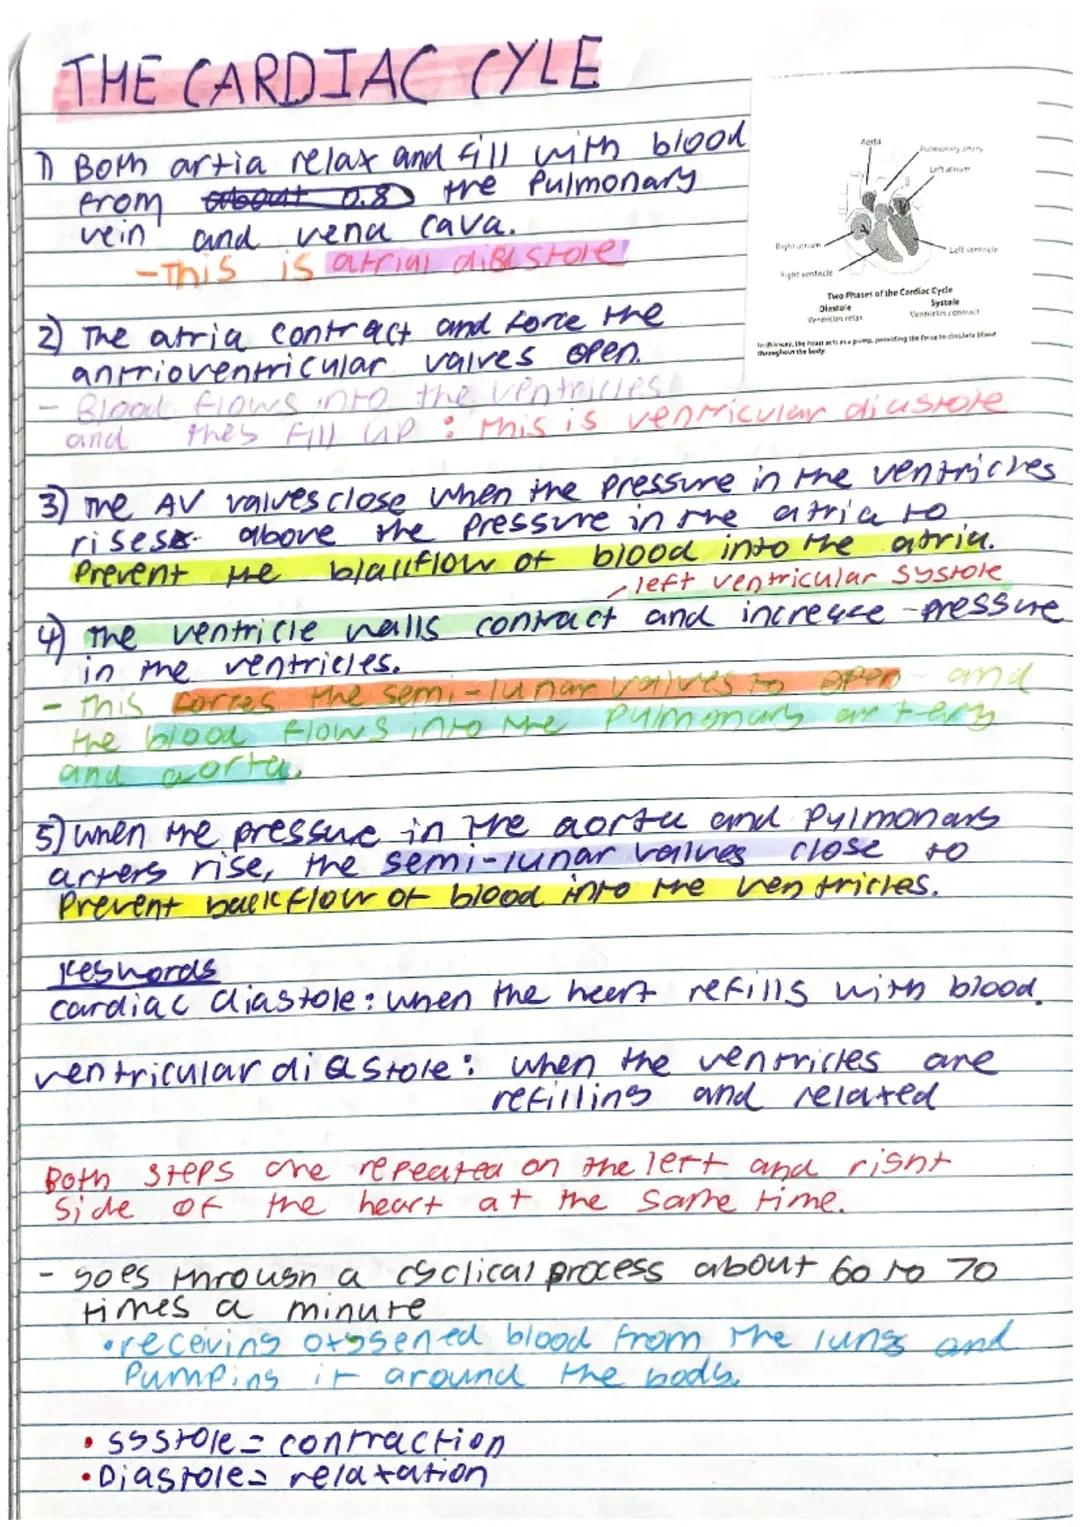 THE CARDIAC CYLE
1) Both artia relax and fill with blood
from about 0.8 the pulmonary
vein and vena cava.
- This is atrial diastole
Aorta
Pulmonary artery
Left atrium
Right atrium
Left ventricle
Right ventricle
Two Phases of the Cardiac Cycle
Diastole
Systole
Ventricles relax
Ventricles contract
In this way, the heart acts as a pump, providing the force to circulate blood
throughout the body.
2) The atria contract and force the
antrioventricular valves open.
- Blood flows into the ventricles
and they fill up : this is ventricular diastole
3) The AV valves close when the pressure in the ventricles
rises above the pressure in the atria to
Prevent the blackflow of blood into the atria.
left ventricular systole
4) The ventricle walls contract and increase pressure
in the ventricles.
- this forces the semi-lunar valves to open and
the blood flows into the pulmonary artery
and aorta.
5) when the pressure in the aorta and pulmonary
artery rise, the semi-lunar valves close to
Prevent backflow of blood into the ventricles.
Keywords
cardiac diastole: when the heart refills with blood.
ventricular diastole: when the ventricles are
refilling and relaxed
Both steps are repeated on the left and right
side of the heart at the same time.
- goes through a cyclical process about 60 to 70
times a minute
• receving oxygened blood from the lungs and
Pumping it around the body.
• systole = contraction
• Diastole = relaxation